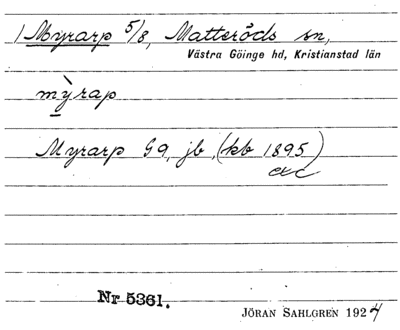 1 Myrarp 5/8, Matteröds sn,
Västra Göinge hd, Kristianstad län
mỳrap
Myrarp G9, jb, (kb 1895)
etc
Nr 5361.
JÖRAN SAHLGREN 1924